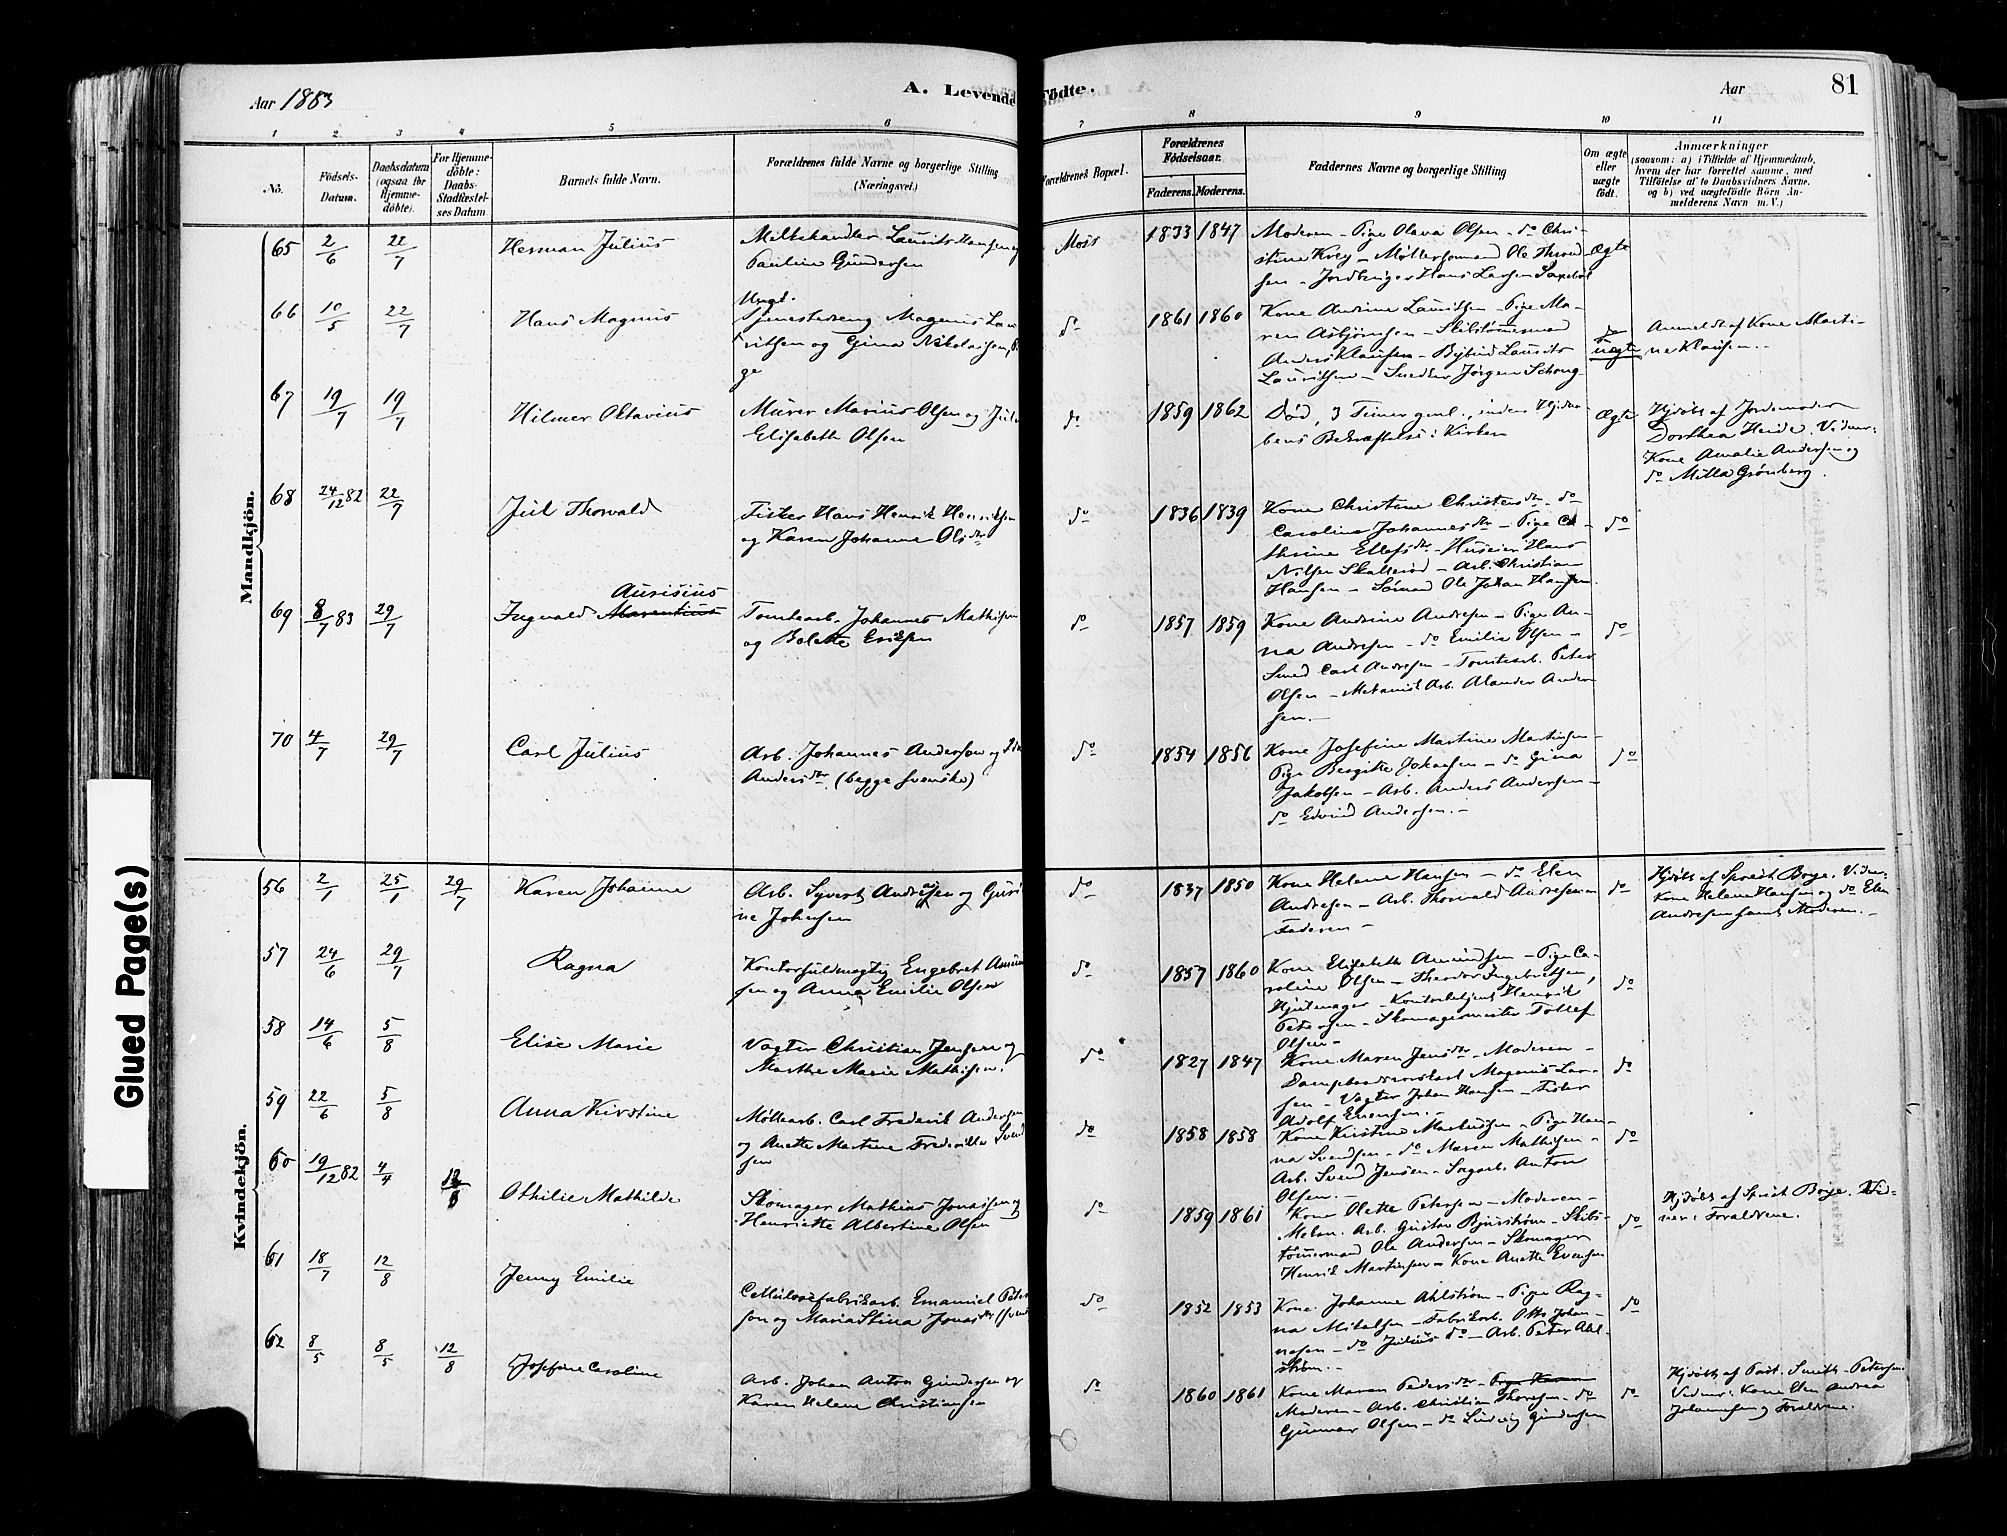 Aar 1883
A. Levende
Födte.
Aar
81
1 2 3 4 5 6 7 8 9 10 11
No.
Födsels-
Datum.
Daabsdatum
(ogsaa for
Hjemme-
döbte).
For Hjemme-
döbte:
Daabs-
Stadfæstel-
ses Datum
Barnets fulde Navn.
Forældrenes fulde Navne og borgerlige Stilling
(Næringsvei.)
Forældrenes Bopæl.
Forældrenes
Födselsaar.
Faderens. Moderens.
Faddernes Navne og borgerlige Stilling
Om ægte
eller
uægte
födt.
Anmærkninger
(saasom: a) i Tilfælde af Hjemmedaab,
hvem der har forrettet samme, med
Tilföielse af to Daabsvidners Navne,
og b) ved uægtefödte Börn An-
melderens Navn m. V.)
Mandkjön.
65 2/6 22/7 Herman Julius
Melkehandler Laurits Hansen og
Pauline Gundersen
Moss 1833 1847
Moderen – Pige Olava Olsen – do Chri-
stine Krey – Møllersvend Ole Thrond-
sen – Jordbruger Hans Larsen
Ægte
66 10/5 22/7 Hans Magnus
Ungk.
Tjenestedreng Magnus Lau-
ritsen og Gina Nikolaisen, Pi
ge
do 1861 1860
Kone Andrine Lauritsen – Pige Ma-
ren Asbjørnsen – Skibstømmermand
Anders Klausen – Bybud Laurits
Lauritsen – Snedker Jørgen Schoug
do
uægte
Anmeldt af Kone Marti-
ne Klausen.
67 19/7 19/7 Hilmer Oktavius
Murer Marius Olsen og Jul
Elisabeth Olsen
do 1859 1862
Død, 3 Timer gml., inden Hjdaa-
bens Bekræftelse i Kirken
Ægte
Hjdøbt af Jordemoder
Dorthea Heide. Vidner:
Kone Amalie Andersen og
do Milla Grønberg.
68 24/12 82 22/7 Juel Thorvald
Fisker Hans Henrik Henriksen
og Karen Johanne Olsdtr
do 1836 1839
Kone Christine Christensdtr – do
Caroline Johannesdtr – Pige Ca-
thrine Ellefsdtr – Huseier Hans
Nilsen Skallerød – Arb. Christian
Hansen – Sømand Ole Johan Hansen.
do
69 8/7 83 29/7
Aurisius
Ingvald Marentius
Tomtearb. Johannes Mathisen
og Bolette Eriksen
do 1857 1859
Kone Andrine Andresen – Pige An-
na Andresen – do Emilie Olsen –
Smed Carl Andresen – Tomtearb. Peter
Olsen – Mekanisk Arb. Alander Ander
sen. –
do
70 4/7 29/7 Carl Julius
Arb. Johannes Anderson og
Andersdtr. (begge svenske)
do 1854 1856
Kone Josefine Martine Martinsen –
Pige Bergitte Johansen – do Gina
Jakobsen – Arb. Anders Andersen –
do Edvind Andersen. –
do
Kvindekjön.
56 2/1 25/1 29/7 Karen Johanne
Arb. Syvert Andresen og Guri
ne Johnsen
do 1837 1850
Kone Helene Hansen – do Elen
Andresen – Arb. Thorvald Andresen
Faderen –
do
Hjdøbt af Sprest Borge. Vidner:
Kone Helene Hansen og do Elen
Andresen samt Moderen. –
57 24/6 29/7 Ragna
Kontorfuldmægtig Engebret Amund
sen og Anna Emilie Olsen
do 1857 1860
Kone Elisabeth Amundsen – Pige Ca-
roline Olsen – Theodor Ingebretsen,
Hjulmager – Kontorbetjent Henrik
Petersen – Skomagermester Tollef
Olsen –
do
58 14/6 5/8 Elise Marie
Vagter Christian Jensen og
Marthe Marie Mathisen.
do 1827 1847
Kone Maren Jensdtr – Moderen –
Magnus Lar-
sen – Vagter Johan Hansen – Fisker
Adolf Evensen. –
do
59 22/6 5/8 Anna Kirstine
Møllearb. Carl Frederik Andersen
og Anette Martine Frederikke Svend
sen
do 1858 1858
Kone Kirstine Martinsen – Pige Han-
na Svendsen – do Maren Mathisen –
Arb. Svend Jensen – Sagarb. Anton
Olsen. –
do
60 19/12 82 4/4 12/8 Othilie Mathilde
Skomager Mathias Jonassen og
Henriette Albertine Olsen
do 1859 1861
Kone Olette Petersen – Moderen –
Mekan. Arb. Gustav Bjurstrøm – Skibs-
tømmermand Ole Andersen – Skomager
Henrik Martinsen – Kone Anette Evensen
do
Hjdøbt af Sprest Borge. Vid-
ner: Forældrene.
61 18/7 12/8 Jenny Emilie
Cellulosefabrikarb. Emanuel Peter
son og Maria Stina Jonasdtr (svensk
do 1852 1853
Kone Johanne Ahlstrøm – Pige Rag-
na Mikalsen – Fabrikarb. Otto Johan-
nesen – do Julius do – Arb. Peter Ahl-
strøm. –
do
62 8/5 8/5 12/8 Josefine Caroline
Arb. Johan Anton Gundersen og
Karen Helene Christiansen
do 1860 1861
Kone Maren Pedersdtr – Pige Karen
Moderen – Arb. Christian Thoresen – do
Gunnar Olsen – do Ludvig Gundersen
do
Hjdøbt af Past. Smith-Petersen.
Vidner: Kone Elen Andrea
Johannesen og Forældrene.
Glued Page(s)